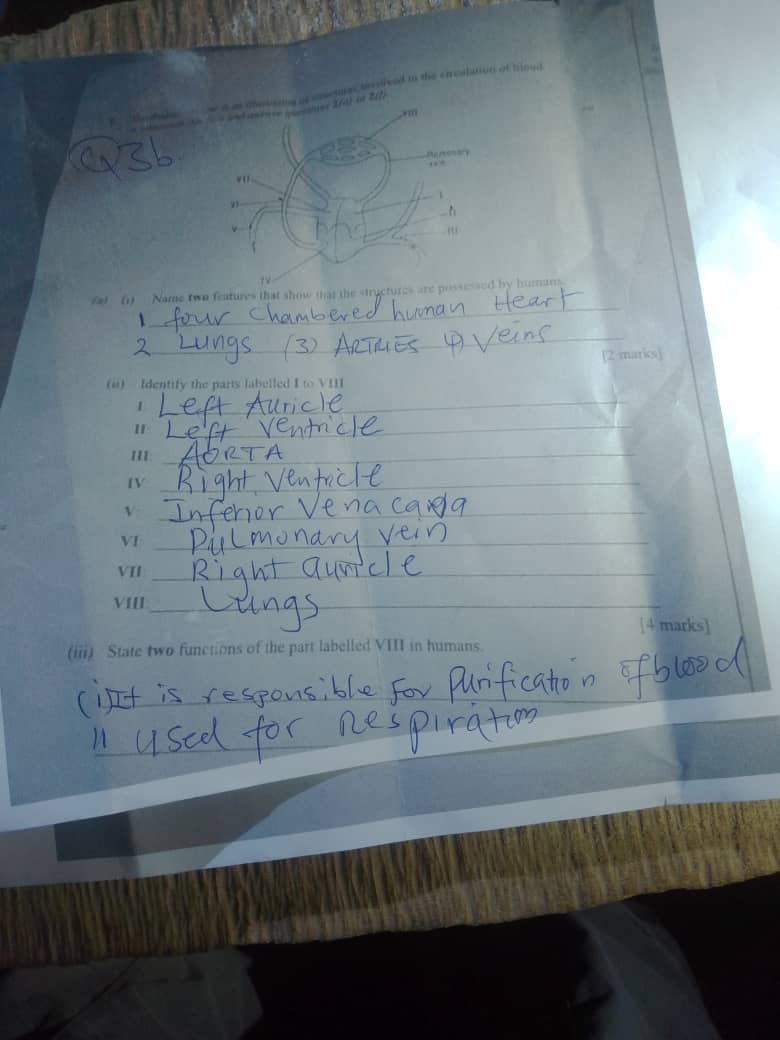 involved in the circulation of blood
Q3b
VIII
Pulmonary
VII
VI
I
V
II
III
IV
(a) (i) Name two features that show that the structures are possessed by humans.
1 four Chambered human Heart
2 Lungs (3) ARTRIES 4) Veins
[2 marks]
(ii) Identify the parts labelled I to VIII
I Left Auricle
II Left Ventricle
III AORTA
IV Right Ventricle
V Inferior Vena cava
VI Pulmonary vein
VII Right auricle
VIII Lungs
[4 marks]
(iii) State two functions of the part labelled VIII in humans.
(i) It is responsible For Purification of blood
II used for Respiration